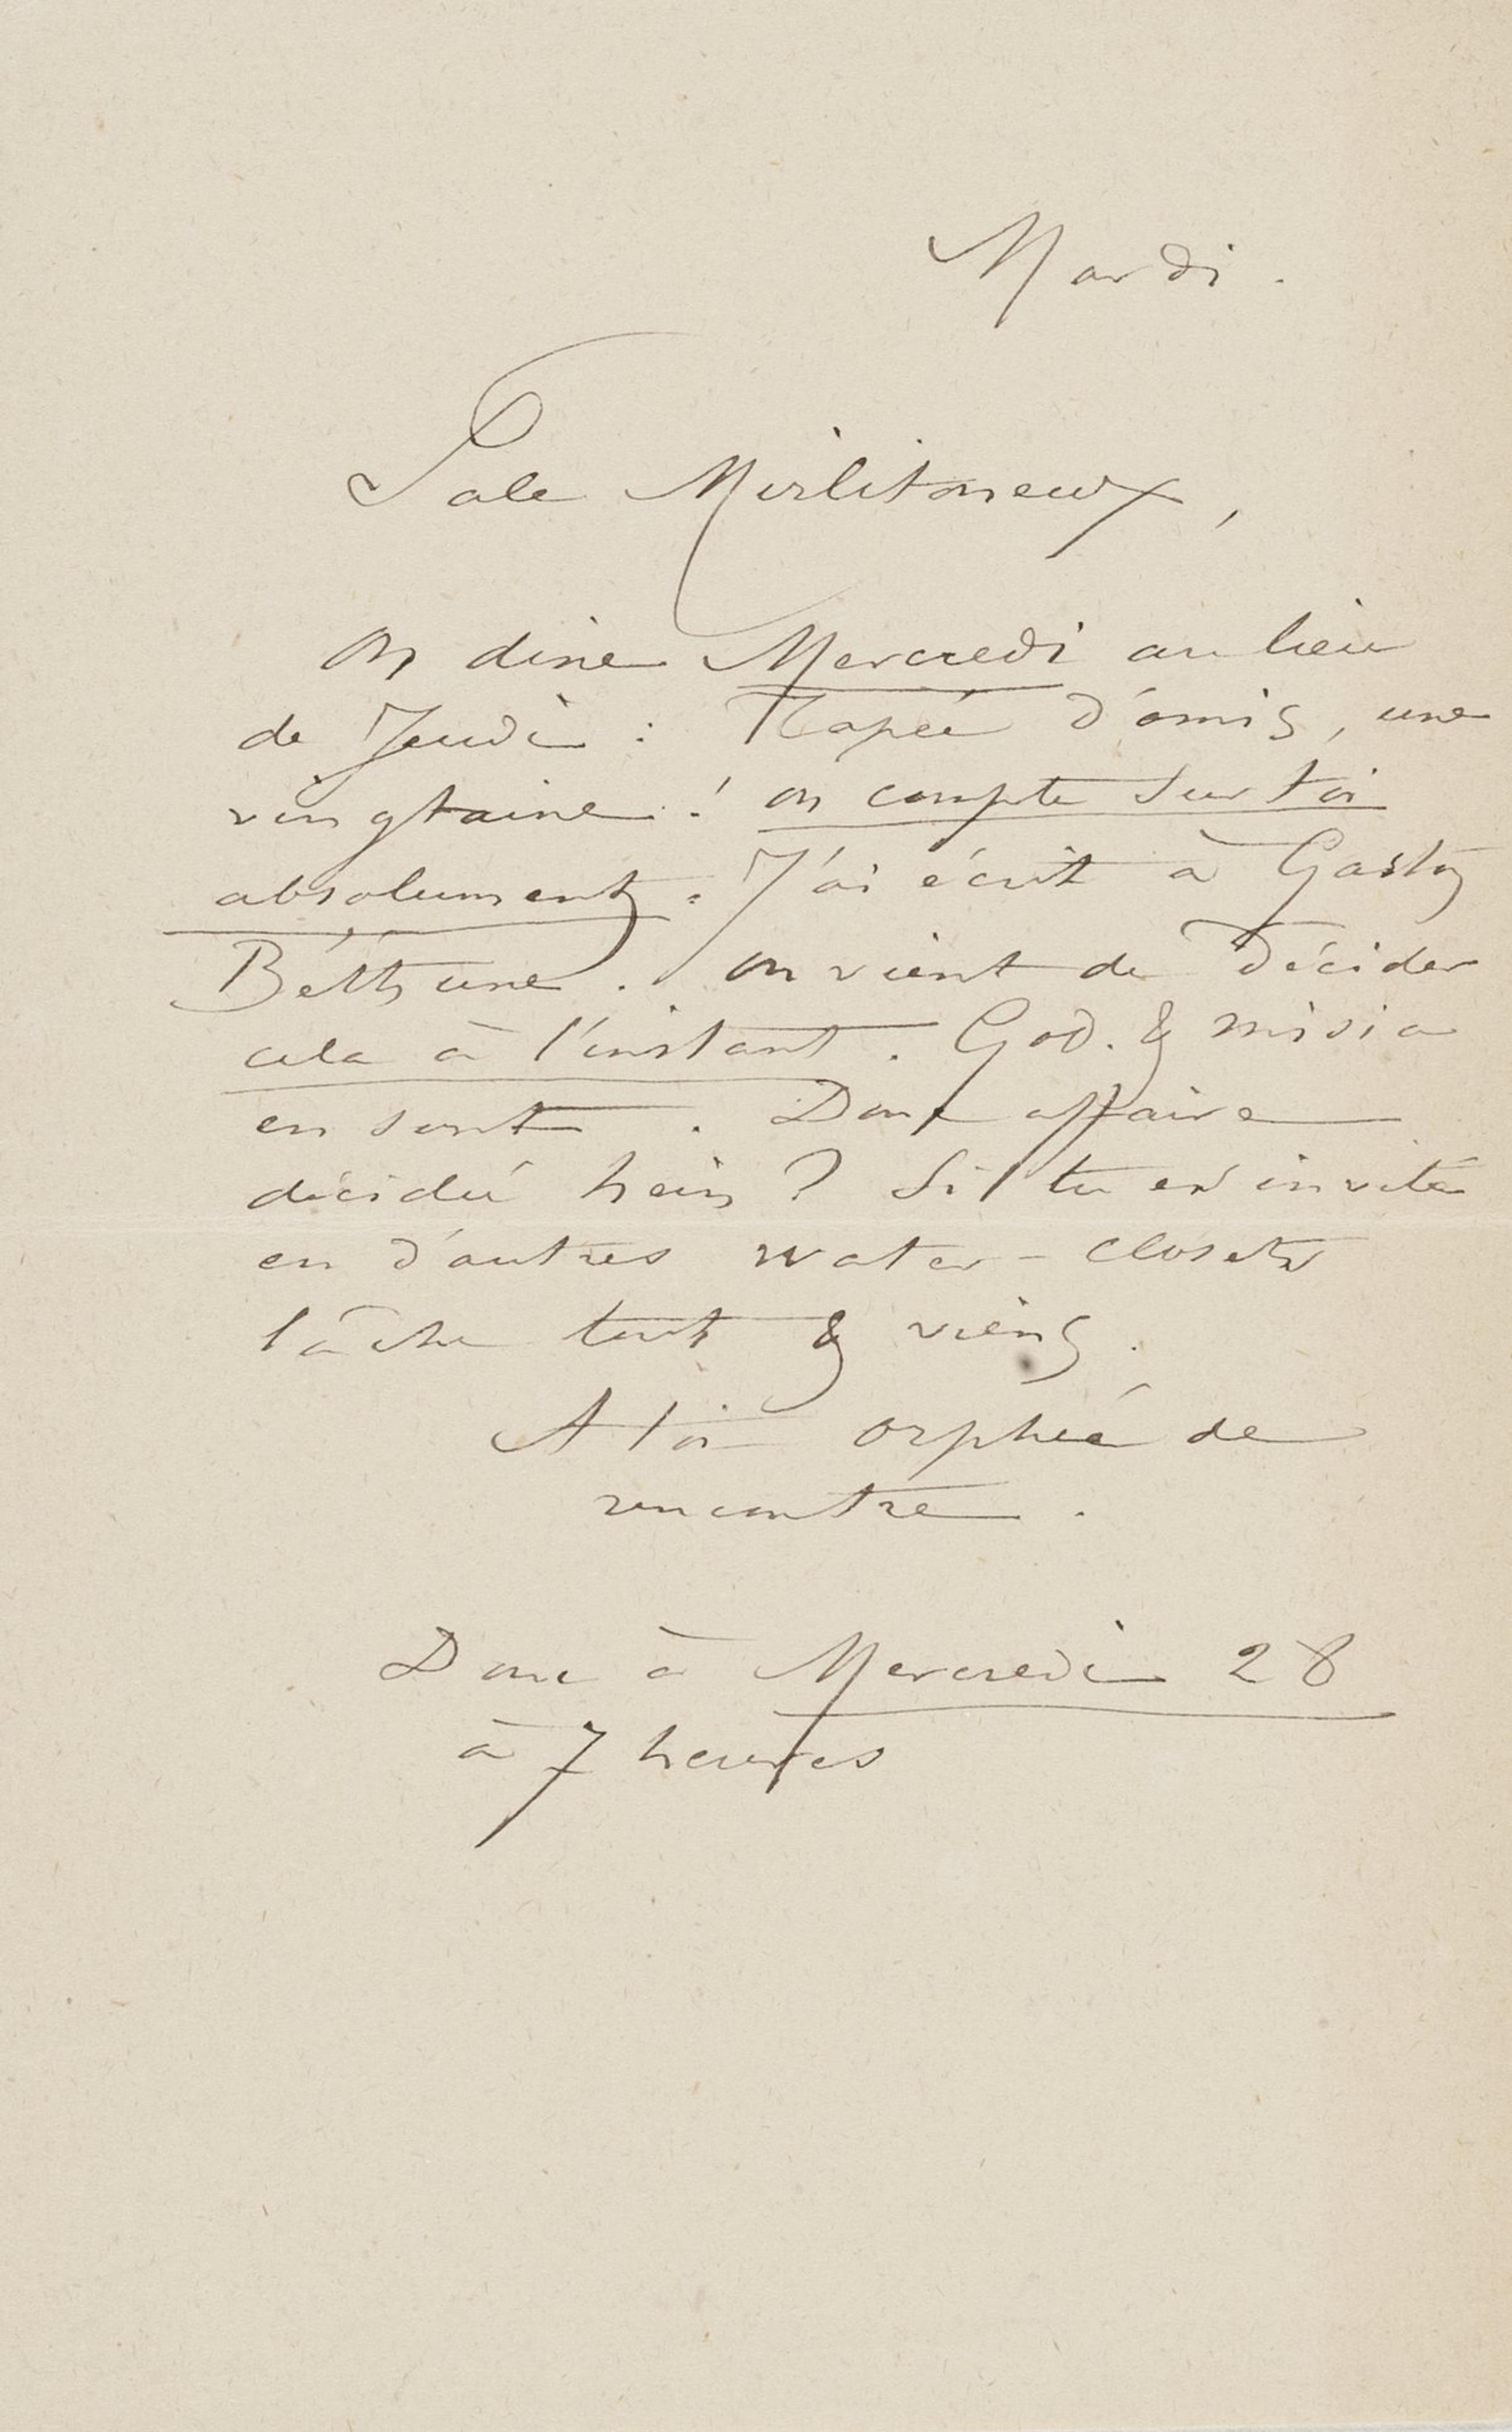 Mardi.
Sale Mirlitoneux,
On dine Mercredi au lieu
de Jeudi : Tapée d'amis, une
vingtaine ! on compte sur toi
absolument. J'ai écrit à Gaston
Béthune. on vient de décider
cela à l'instant. God. & Misia
en sont. Donc affaire
décidée hein ? Si tu es invité
en d'autres water-closets
lâche tout & viens.
A toi orphée de
rencontre.
Donc à Mercredi 28
à 7 heures